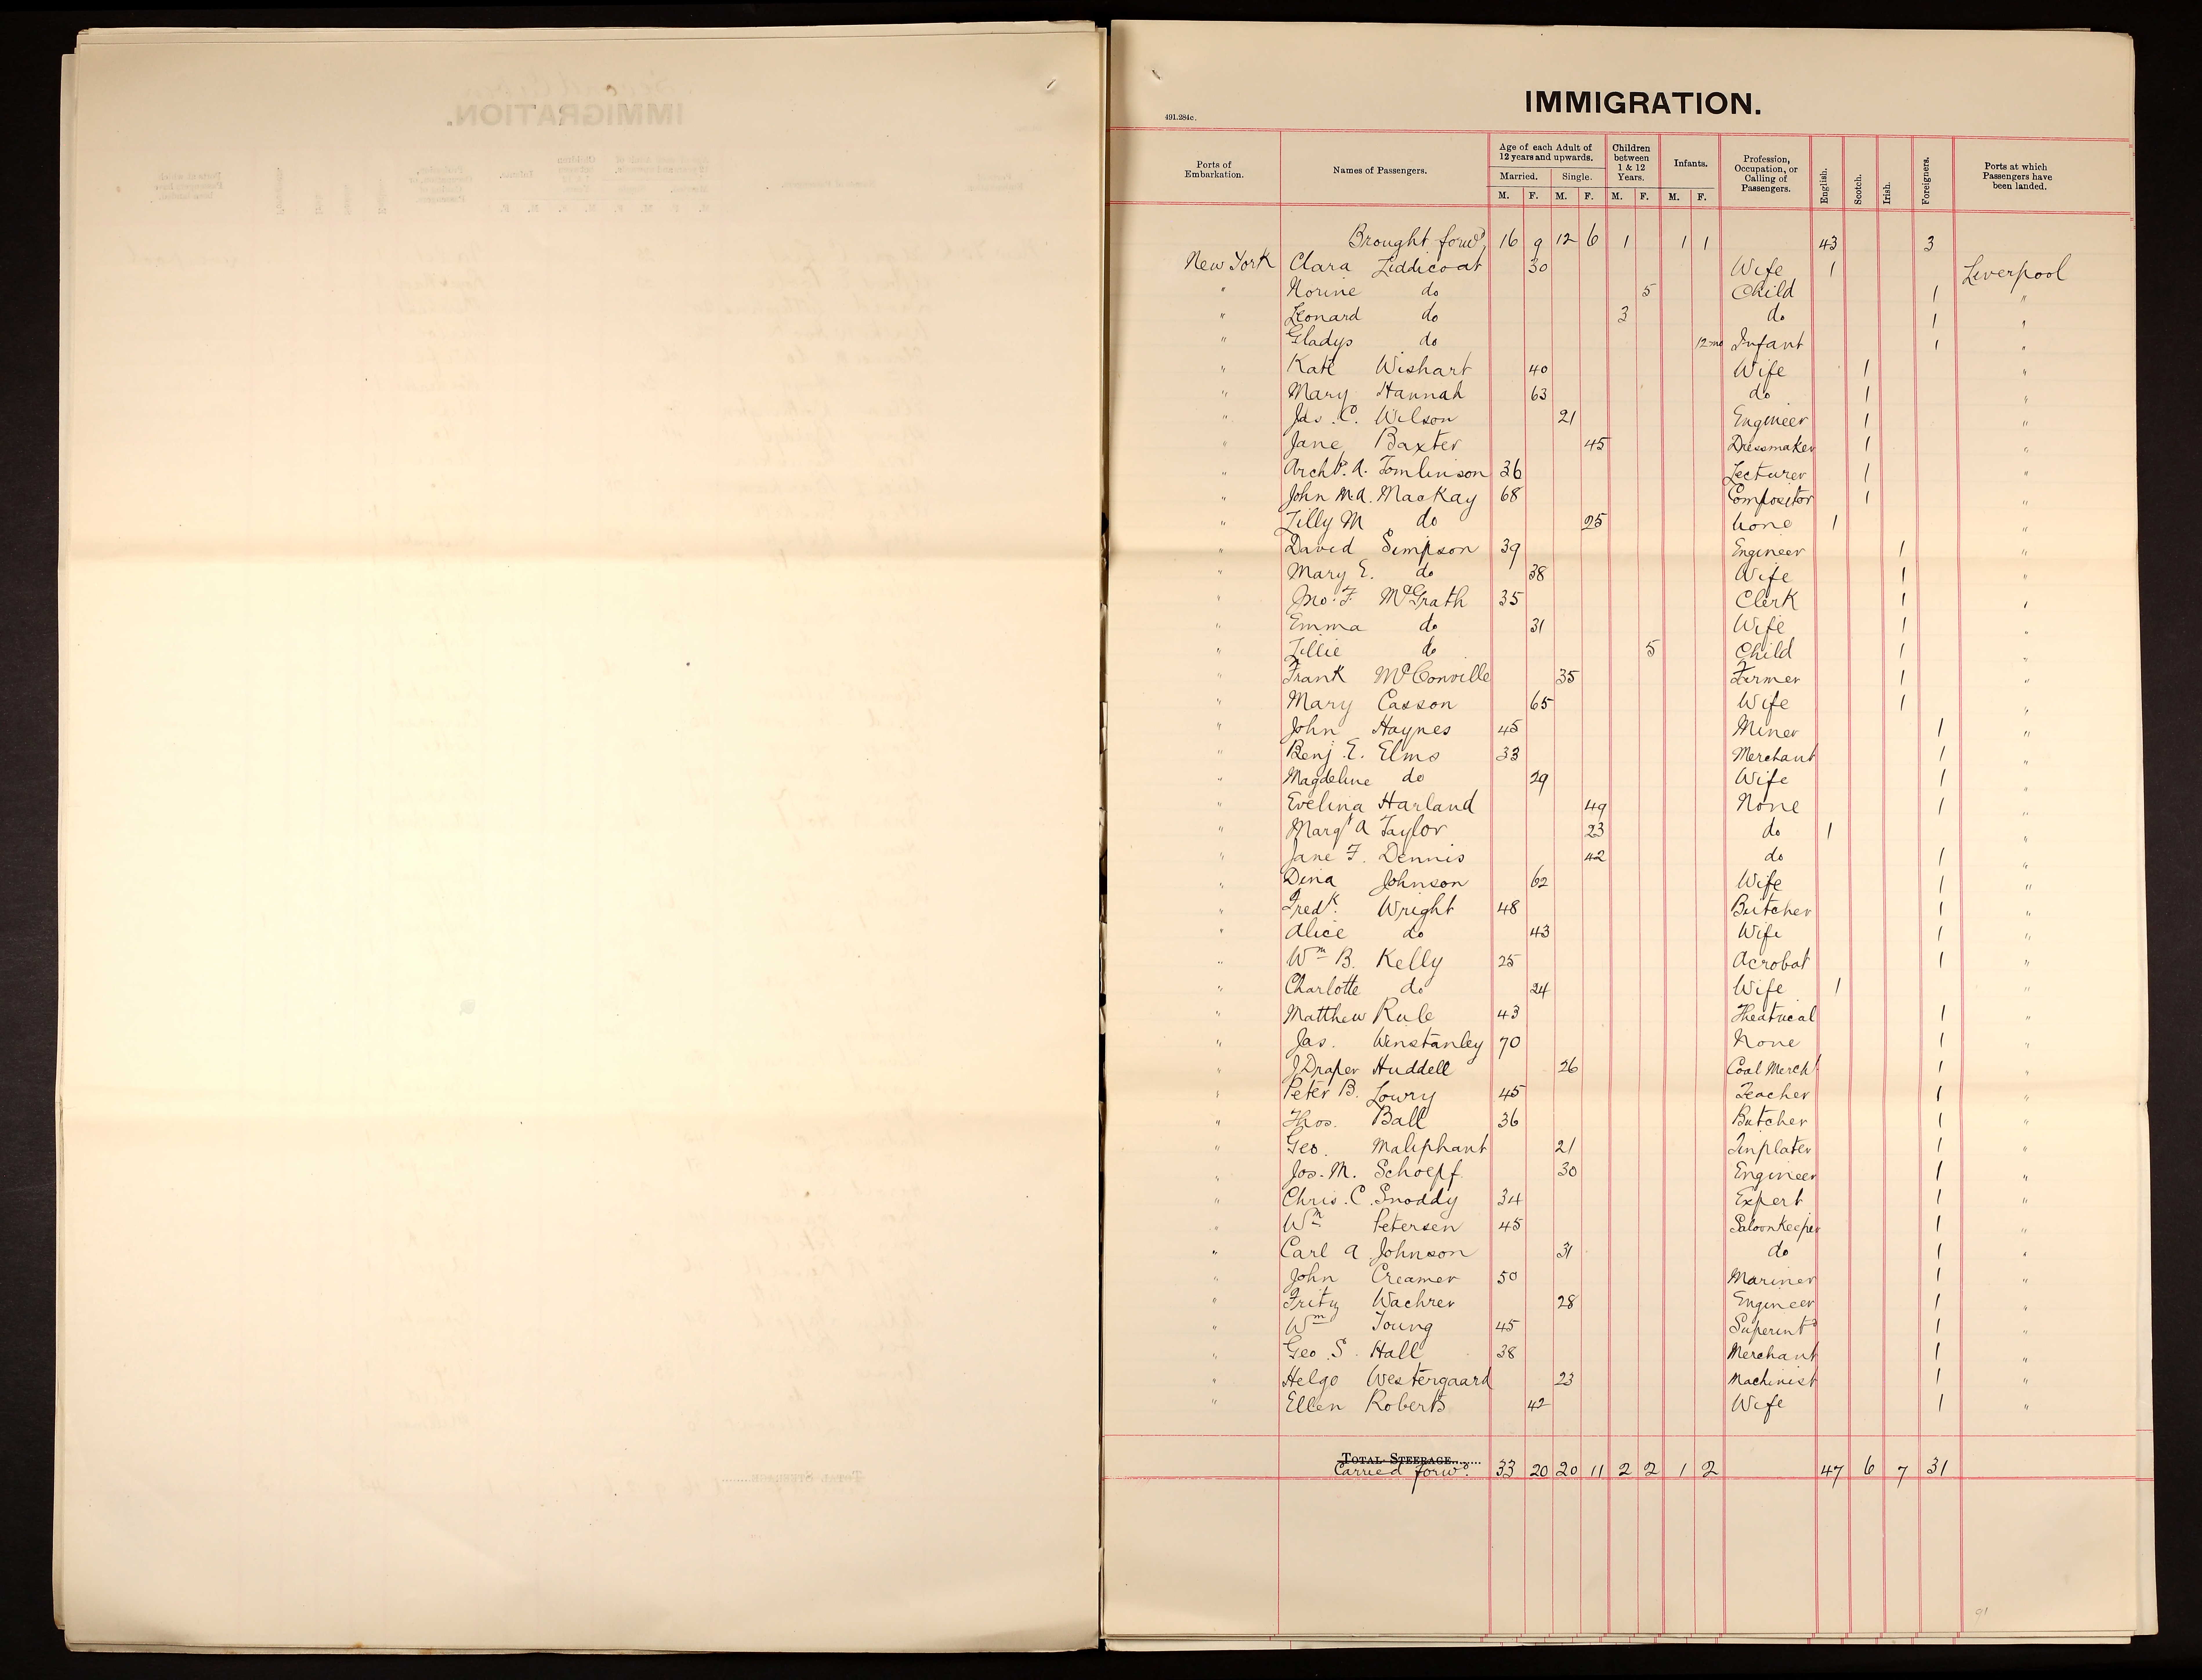 IMMIGRATION.
491.284c.
Ports of Embarkation. Names of Passengers. Age of each Adult of 12 years and upwards. Children between 1 & 12 Years. Infants. Profession, Occupation, or Calling of Passengers. English. Scotch. Irish. Foreigners. Ports at which Passengers have been landed.
Married. Single.
M. F. M. F. M. F. M. F.
Brought forwd, 16 9 12 6 1 1 1 43 3
New York Clara Liddicoat 30 Wife 1 Liverpool
" Norine do 5 Child 1 "
" Leonard do 3 do 1 "
" Gladys do 12 mo Infant 1 "
" Kate Wishart 40 Wife 1 "
" Mary Hannah 63 do 1 "
" Jas. C. Wilson 21 Engineer 1 "
" Jane Baxter 45 Dressmaker 1 "
" Archd. A. Tomlinson 36 Lecturer 1 "
" John McA. MacKay 68 Compositor 1 "
" Lilly M do 25 None 1 "
" David Simpson 39 Engineer 1 "
" Mary E. do 38 Wife 1 "
" Jno. F. McGrath 35 Clerk 1 "
" Emma do 31 Wife 1 "
" Lillie do 5 Child 1 "
" Frank McConville 35 Farmer 1 "
" Mary Casson 65 Wife 1 "
" John Haynes 45 Miner 1 "
" Benj. E. Elms 33 Merchant 1 "
" Magdeline do 29 Wife 1 "
" Evelina Harland 49 None 1 "
" Margt A Taylor 23 do 1 "
" Jane F. Dennis 42 do 1 "
" Dina Johnson 62 Wife 1 "
" Fredk. Wright 48 Butcher 1 "
" Alice do 43 Wife 1 "
" Wm B. Kelly 25 Acrobat 1 "
" Charlotte do 24 Wife 1 "
" Matthew Rule 43 Theatrical 1 "
" Jas. Winstanley 70 None 1 "
" J Draper Huddell 26 Coal Mercht 1 "
" Peter B. Lowry 45 Teacher 1 "
" Thos. Ball 36 Butcher 1 "
" Geo. Maliphant 21 Tinplater 1 "
" Jos. M. Schoepf 30 Engineer 1 "
" Chris. C. Snoddy 34 Expert 1 "
" Wm Petersen 45 Saloonkeeper 1 "
" Carl A Johnson 31 do 1 "
" John Creamer 50 Mariner 1 "
" Fritz Wachrer 28 Engineer 1 "
" Wm Young 45 Superintd 1 "
" Geo. S. Hall 38 Merchant 1 "
" Helge Westergaard 23 Machinist 1 "
" Ellen Roberts 42 Wife 1 "
TOTAL STEERAGE........
Carried forwd. 33 20 20 11 2 2 1 2 47 6 7 31
91